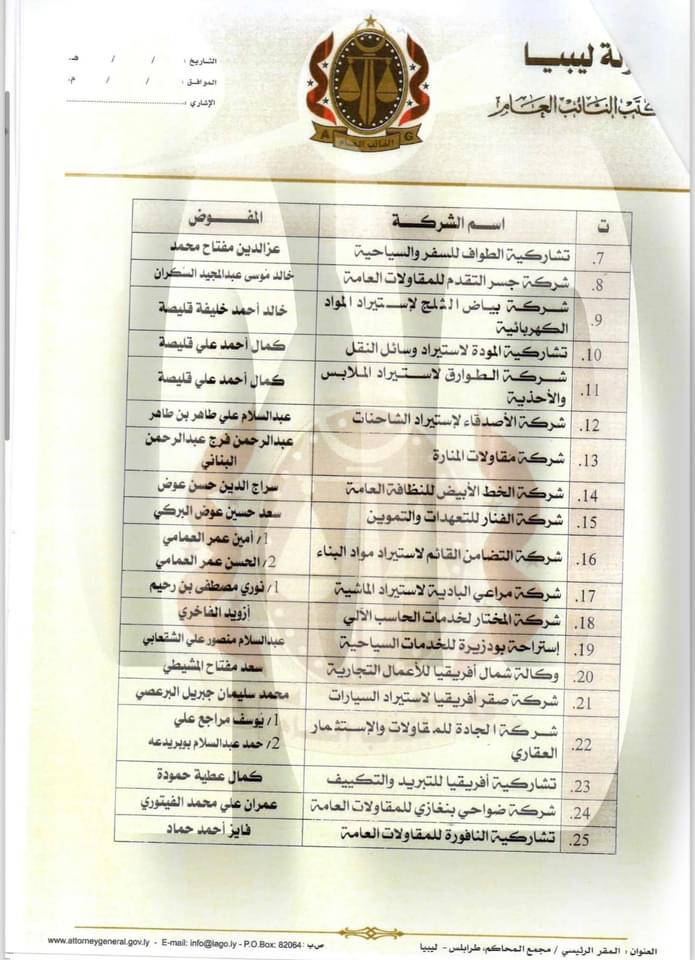 ـة ليبيا
ـكتب النائب العام
التاريخ : / / هـ
الموافق : / / م.
الإشاري :
النائب العام
A G
ت اسم الشركة المفوض
7. تشاركية الطواف للسفر والسياحية عزالدين مفتاح محمد
8. شركة جسر التقدم للمقاولات العامة خالد موسى عبدالمجيد السكران
9. شركة بياض الثلج لإستيراد المواد الكهربائية خالد أحمد خليفة قليصة
10. تشاركية المودة لاستيراد وسائل النقل كمال أحمد علي قليصة
11. شركة الطوارق لاستيراد الملابس والأحذية كمال أحمد علي قليصة
12. شركة الأصدقاء لإستيراد الشاحنات عبدالسلام علي طاهر بن طاهر
13. شركة مقاولات المنارة عبدالرحمن فرج عبدالرحمن البناني
14. شركة الخط الأبيض للنظافة العامة سراج الدين حسن عوض
15. شركة الفنار للتعهدات والتموين سعد حسين عوض البركي
16. شركة التضامن القائم لاستيراد مواد البناء 1/ أمين عمر العمامي
2/ الحسن عمر العمامي
17. شركة مراعي البادية لاستيراد الماشية 1/ نوري مصطفى بن رحيم
18. شركة المختار لخدمات الحاسب الآلي أزويد الفاخري
19. إستراحة بودزيرة للخدمات السياحية عبدالسلام منصور علي الشقعابي
20. وكالة شمال أفريقيا للأعمال التجارية سعد مفتاح المشيطي
21. شركة صقر أفريقيا لاستيراد السيارات محمد سليمان جبريل البرعصي
22. شركة الجادة للمقاولات والإستثمار العقاري 1/ يوسف مراجع علي
2/ حمد عبدالسلام بوبريدعه
23. تشاركية أفريقيا للتبريد والتكييف كمال عطية حمودة
24. شركة ضواحي بنغازي للمقاولات العامة عمران علي محمد الفيتوري
25. تشاركية النافورة للمقاولات العامة فايز أحمد حماد
العنوان : المقر الرئيسي / مجمع المحاكم، طرابلس - ليبيا
ص ب : 82064 www.attorneygeneral.gov.ly - E-mail: info@lago.ly - P.O.Box: 82064